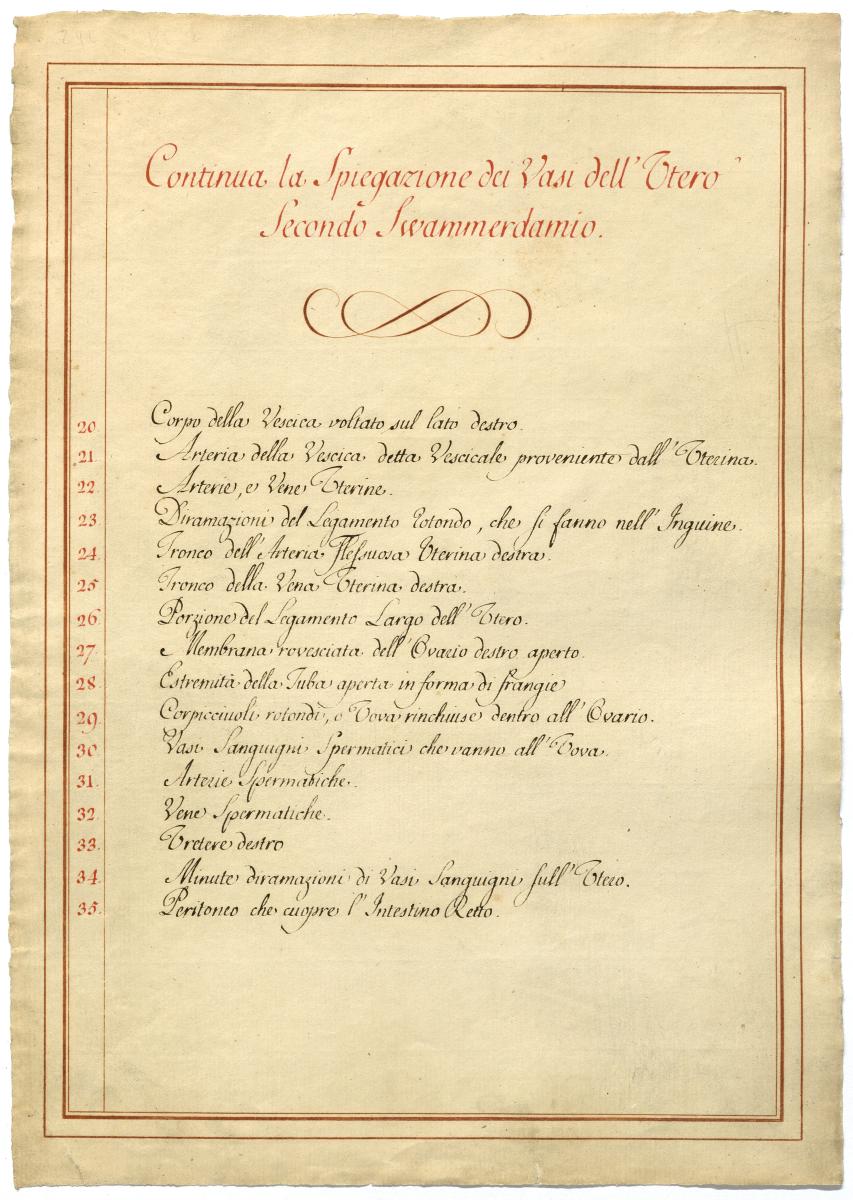 Continua la Spiegazione dei Vasi dell' Utero
Secondo Swammerdamio.
20. Corpo della Vescica voltato sul lato destro.
21. Arteria della Vescica detta Vescicale proveniente dall' Uterina.
22. Arterie, e Vene Uterine.
23. Diramazioni del Legamento Rotondo, che si fanno nell' Inguine.
24. Tronco dell' Arteria Flessuosa Uterina destra.
25. Tronco della Vena Uterina destra.
26. Porzione del Legamento Largo dell' Utero.
27. Membrana rovesciata dell' Ovario destro aperto.
28. Estremità della Tuba aperta in forma di frangie
29. Corpicciuoli rotondi, o Uova rinchiuse dentro all' Ovario.
30. Vasi Sanguigni Spermatici che vanno all' Uova.
31. Arterie Spermatiche.
32. Vene Spermatiche.
33. Uretere destro
34. Minute diramazioni di Vasi Sanguigni sull' Utero.
35. Peritoneo che cuopre l' Intestino Retto.